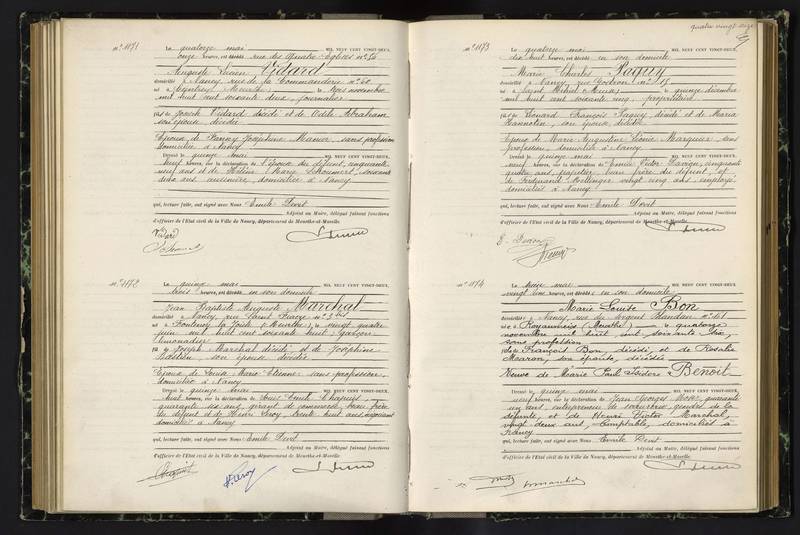 quatre vingt onze
N° 1171
Le quatorze mai MIL NEUF CENT VINGT-DEUX,
onze heures, est décédé rue des Quatre Eglises n° 52
Auguste Lucien Vidard
domicilié à Nancy, rue de la Commanderie n° 20
né à (Meurthe) le trois novembre
mil huit cent soixante deux, journalier
fils de Joseph Vidard décédé et de Odile Abraham
son épouse décédée
Epoux de Fanny Joséphine sans profession
domiciliée à Nancy
Dressé le quinze mai MIL NEUF CENT VINGT-DEUX,
neuf heures, sur la déclaration de l'épouse du défunt, cinquante
neuf ans et de Hélène Marie soixante
ans domiciliées à Nancy
qui, lecture faite, ont signé avec Nous Emile Devit
Adjoint au Maire, délégué faisant fonctions
d'officier de l'Etat civil de la Ville de Nancy, département de Meurthe-et-Moselle.
Vidard
N° 1172
Le quinze mai MIL NEUF CENT VINGT-DEUX,
trois heures, est décédé en son domicile
Jean Baptiste Auguste Marchal
domicilié à Nancy, rue Saint n° 3 bis
né à Fontenoy la Joute (Meurthe) le vingt quatre
juin mil huit cent soixante huit, garçon
limonadier
fils de Joseph Marchal décédé et de Joséphine
Bastien, son épouse décédée
Epoux de Louise Marie Etienne sans profession,
domiciliée à Nancy
Dressé le quinze mai MIL NEUF CENT VINGT-DEUX,
huit heures, sur la déclaration de Louis Emile Chapuis,
quarante six ans, gérant de commerce, beau frère
du défunt et de Henri Leroy, trente huit ans, négociant
domiciliés à Nancy
qui, lecture faite, ont signé avec Nous Emile Devit
Adjoint au Maire, délégué faisant fonctions
d'officier de l'Etat civil de la Ville de Nancy, département de Meurthe-et-Moselle.
H. Leroy
N° 1173
Le quatorze mai MIL NEUF CENT VINGT-DEUX,
dix huit heures, est décédé en son domicile
Marie Charles Paquy
domicilié à Nancy, rue n° 15
né à Saint Mihiel (Meuse) le quinze décembre
mil huit cent soixante cinq, propriétaire
fils de Léonard François Paquy décédé et de Maria
Hannotin, son épouse, décédée
Epoux de Marie Augustine Léonie Marquier, sans
profession, domiciliée à Nancy
Dressé le quinze mai MIL NEUF CENT VINGT-DEUX,
neuf heures, sur la déclaration de Emile Victor cinquante
quatre ans, papetier, beau frère du défunt, et
de Ferdinand Bollinger vingt cinq ans, employé
domiciliés à Nancy
qui, lecture faite, ont signé avec Nous Emile Devit
Adjoint au Maire, délégué faisant fonctions
d'officier de l'Etat civil de la Ville de Nancy, département de Meurthe-et-Moselle.
N° 1174
Le treize mai MIL NEUF CENT VINGT-DEUX,
vingt une heures, est décédée en son domicile
Marie Louise Bon
domiciliée à Nancy, rue du Sergent Blandan n° 161
née à (Meurthe) le quatorze
novembre mil huit cent soixante six,
sans profession
fille de François Bon, décédé et de Rosalie
son épouse, décédée
Veuve de Marie Paul Isidore Benoit
Dressé le quinze mai MIL NEUF CENT VINGT-DEUX,
neuf heures, sur la déclaration de Jean Georges quarante
un ans, entrepreneur de gendre de la
défunte, et de Henri Victor Marchal,
vingt deux ans, comptable, domiciliés à
Nancy
qui, lecture faite, ont signé avec Nous Emile Devit
Adjoint au Maire, délégué faisant fonctions
d'officier de l'Etat civil de la Ville de Nancy, département de Meurthe-et-Moselle.